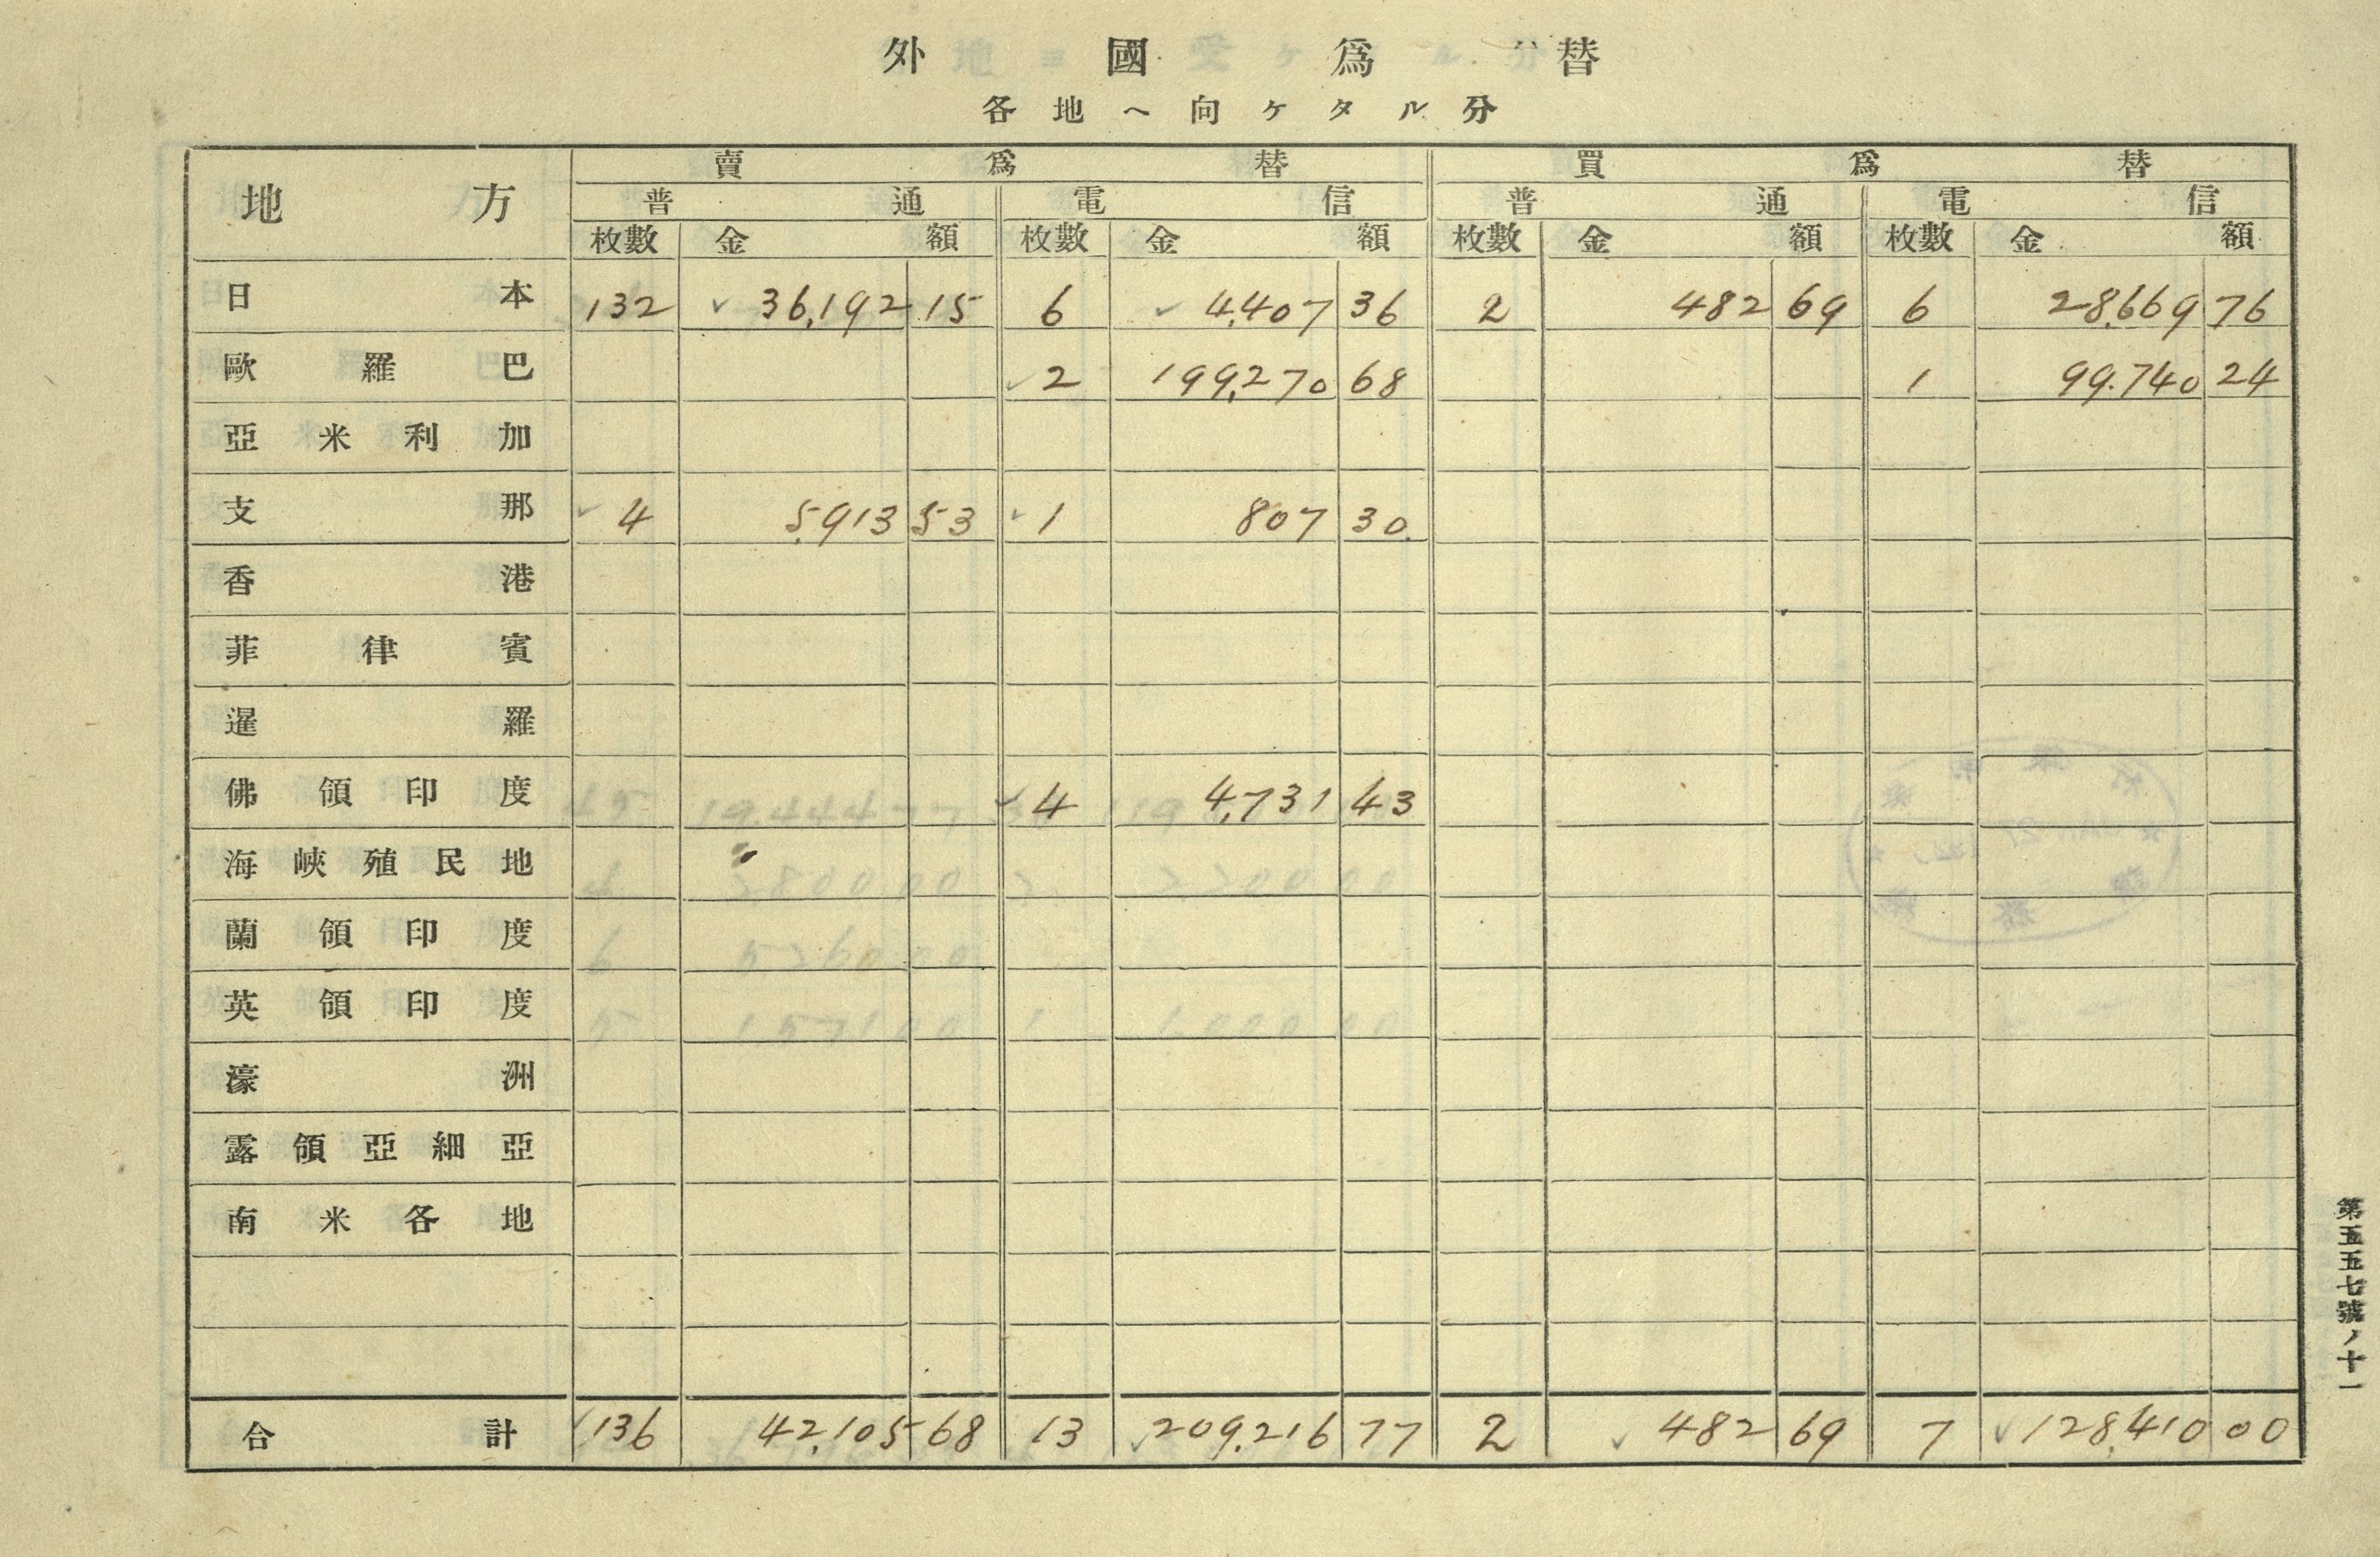 外國爲替
各地ヘ向ケタル分
地方 賣爲替 買爲替
普通 電信 普通 電信
枚數 金額 枚數 金額 枚數 金額 枚數 金額
日本 132 36,192 15 6 4,407 36 2 482 69 6 28,669 76
歐羅巴 2 199,270 68 1 99.740 24
亞米利加
支那 4 5,913 53 1 807 30
香港
菲律賓
暹羅
佛領印度 4 4,731 43
海峽殖民地
蘭領印度
英領印度
濠洲
露領亞細亞
南米各地
合計 136 42,105 68 13 209,216 77 2 482 69 7 128,410 00
第五五七號ノ十一